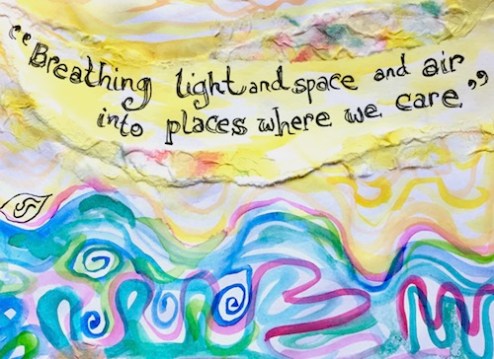 “Breathing light and space and air
into places where we care”